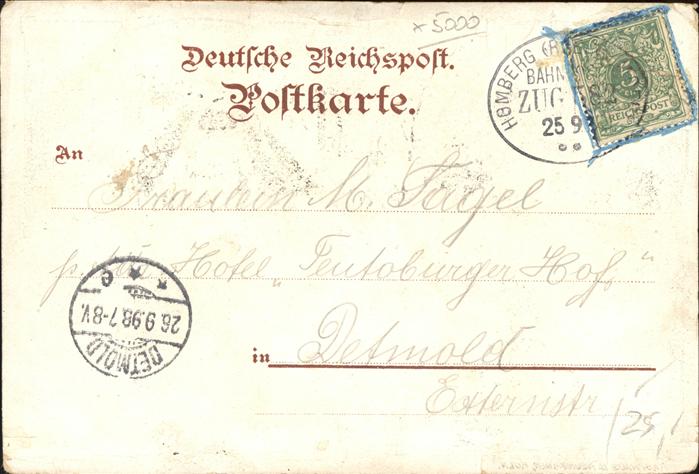 × 5000
Deutsche Reichspost.
Postkarte.
HOMBERG (R
BAHN
ZUG 582
25 9
5
REICHSPOST
An
Fräulein M. Tagel
Hotel „Teutoburger Hof"
in Detmold
Externstr
DETMOLD
26.9.98.7-8V.
e
25,